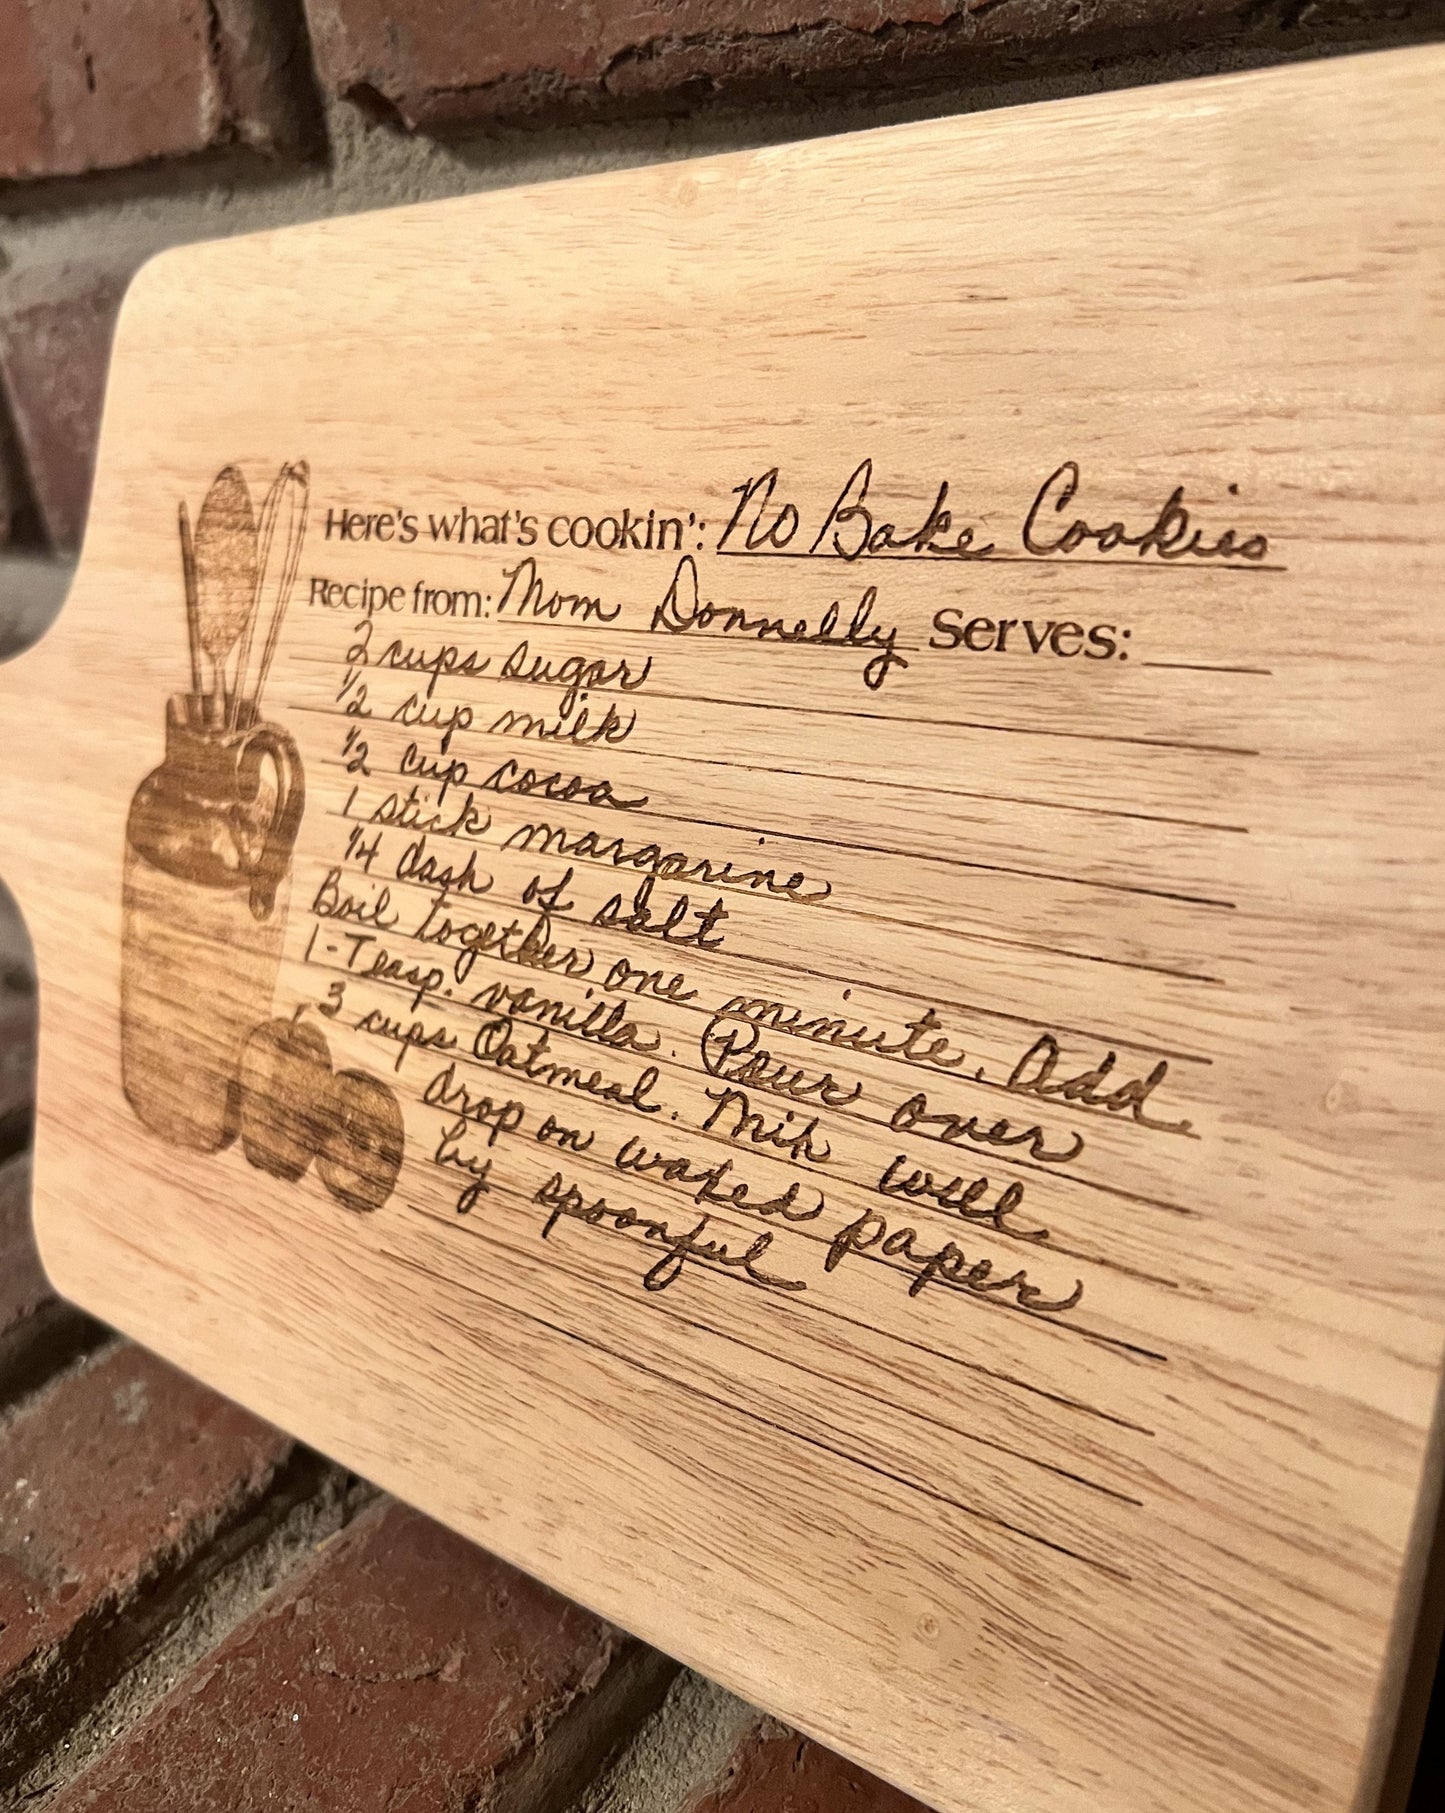 Here's what's cookin': No Bake Cookies
Recipe from: Mom Donnelly Serves:
2 cups sugar
1/2 cup milk
1/2 cup cocoa
1 stick margarine
1/4 dash of salt
Boil together one minute. Add
1-Teasp. vanilla. Pour over
3 cups Oatmeal. Mix well
drop on waxed paper
by spoonful